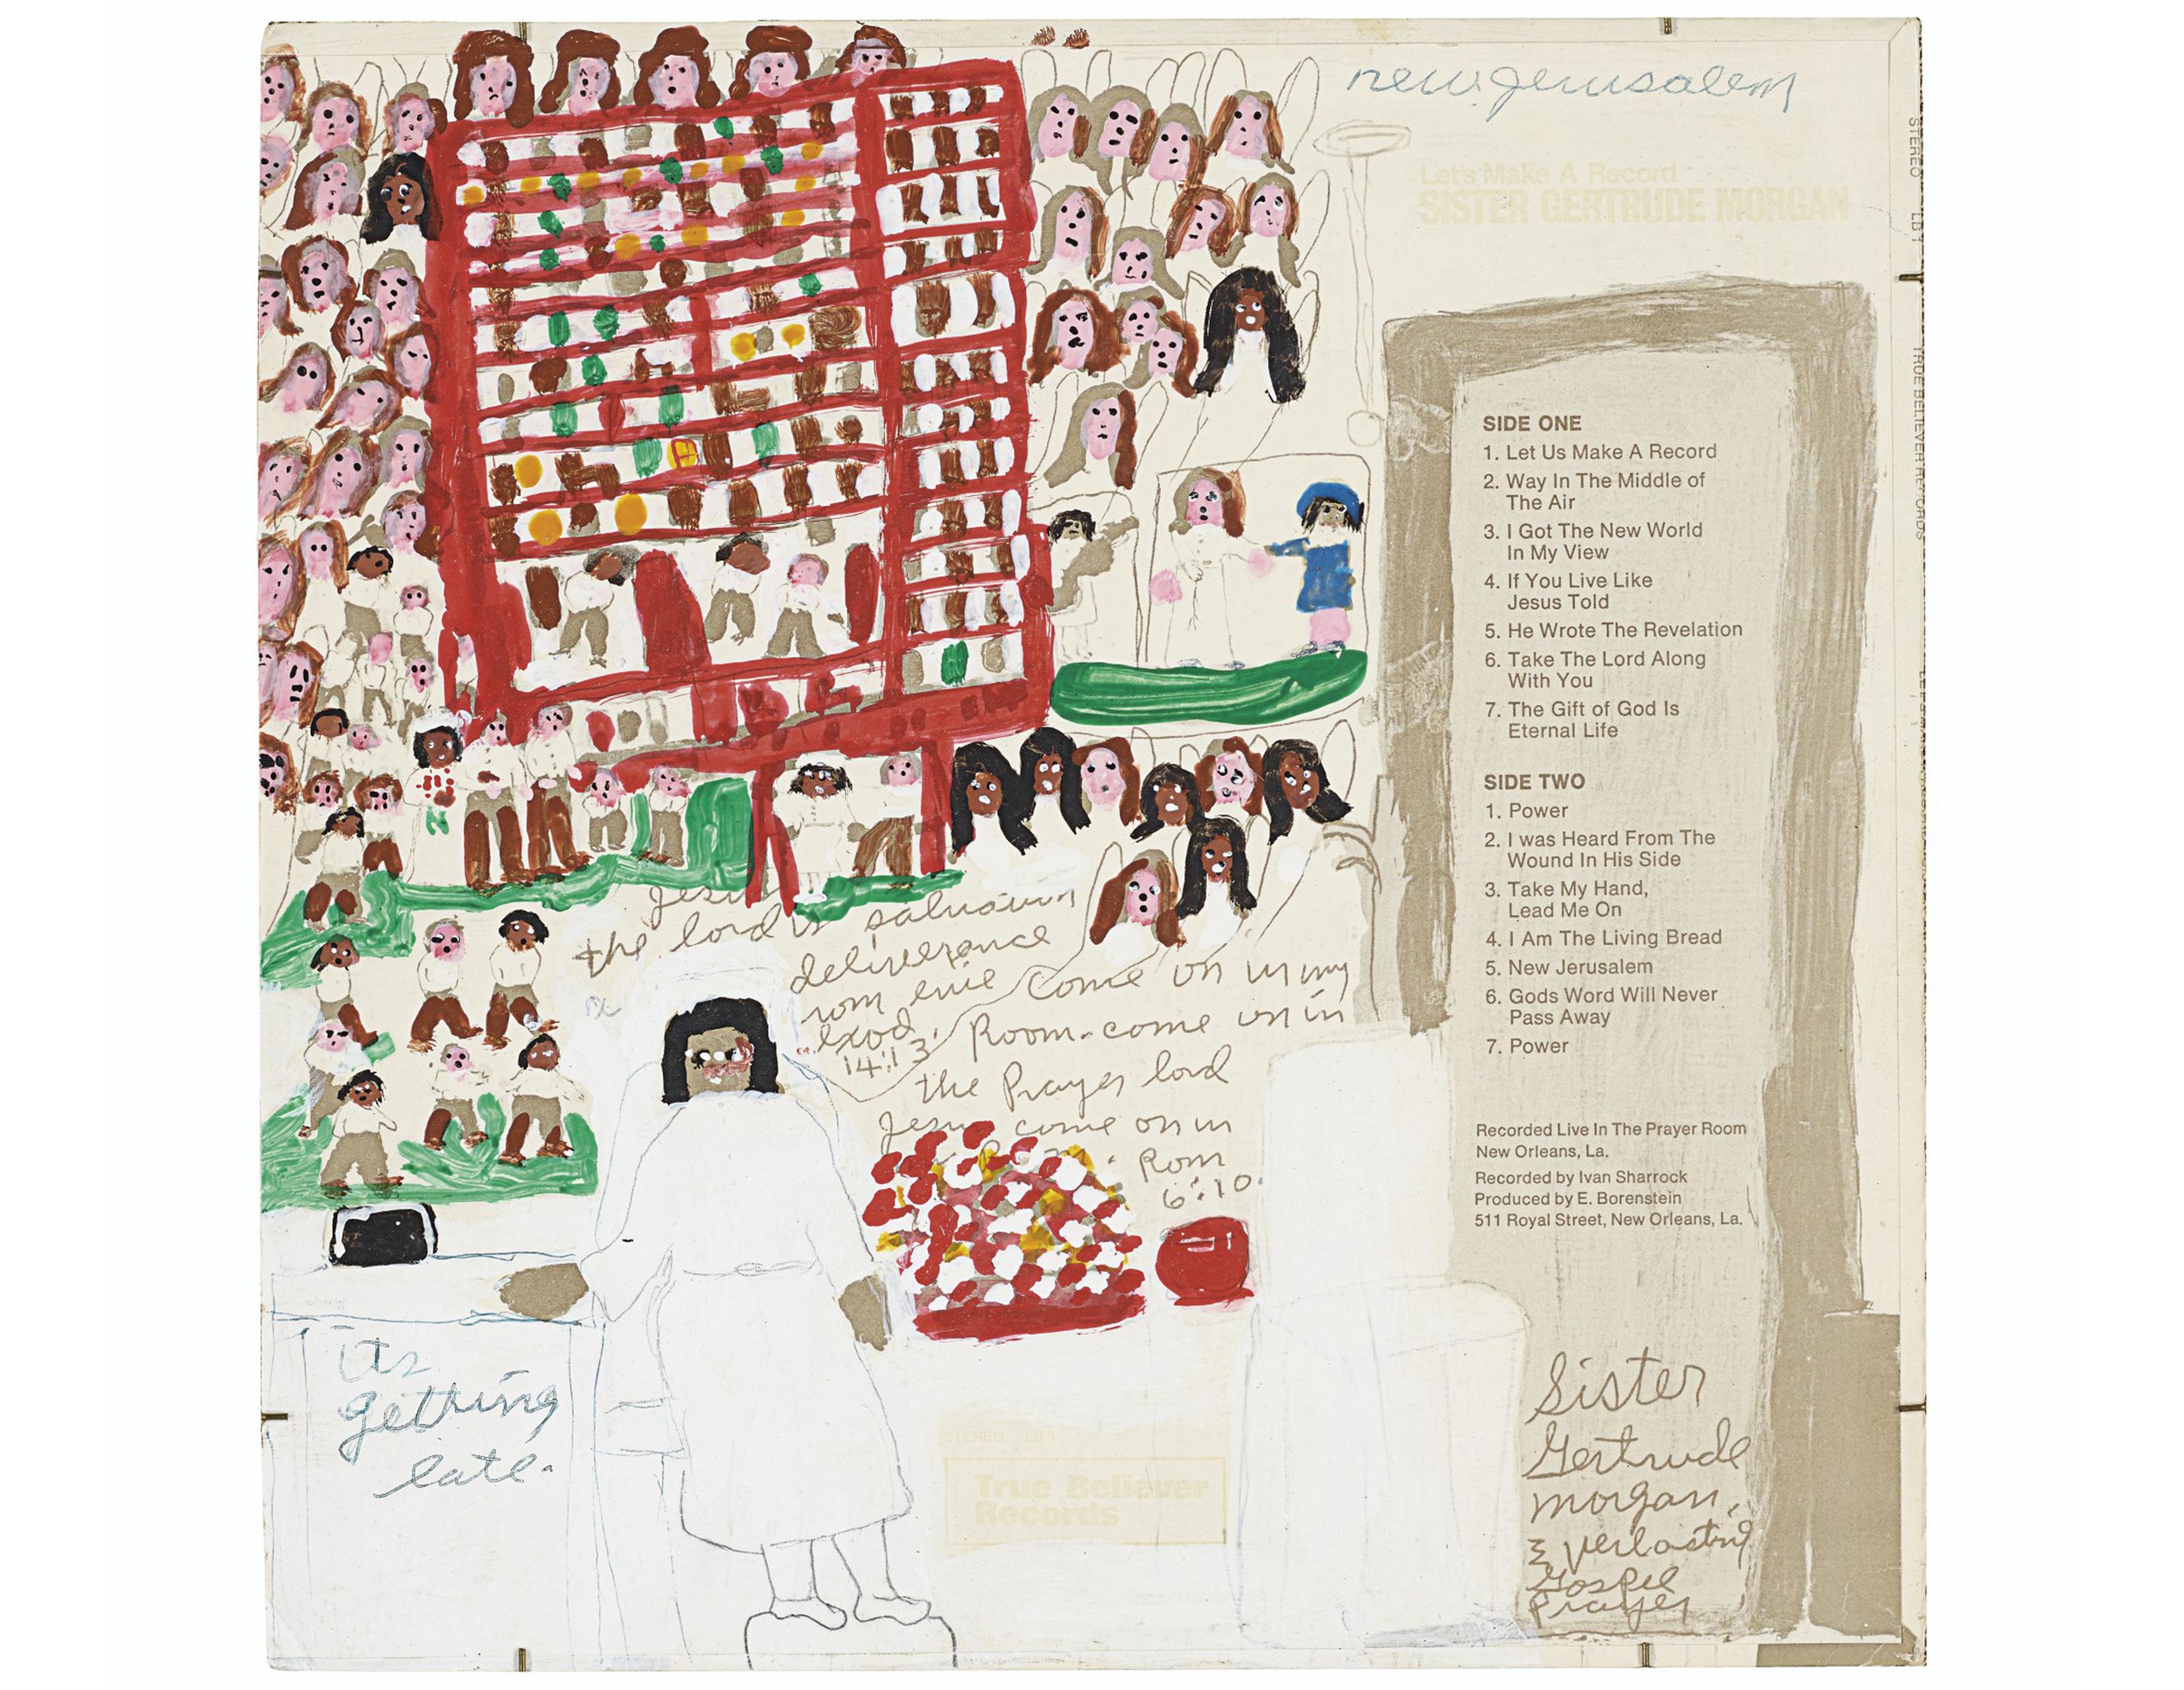 new Jerusalem
Let's Make A Record
SISTER GERTRUDE MORGAN
STEREO LB 1 TRUE BELIEVER RECORDS
SIDE ONE
1. Let Us Make A Record
2. Way In The Middle of
The Air
3. I Got The New World
In My View
4. If You Live Like
Jesus Told
5. He Wrote The Revelation
6. Take The Lord Along
With You
7. The Gift of God Is
Eternal Life
SIDE TWO
1. Power
2. I was Heard From The
Wound In His Side
3. Take My Hand,
Lead Me On
4. I Am The Living Bread
5. New Jerusalem
6. Gods Word Will Never
Pass Away
7. Power
Recorded Live In The Prayer Room
New Orleans, La.
Recorded by Ivan Sharrock
Produced by E. Borenstein
511 Royal Street, New Orleans, La.
the lord is
deliverence
rom
exod
14:13
Come on in my
Room. come on in
the Prayer lord
come on in
Rom
6:10.
its
getting
late.
STEREO LB 1
True Believer
Records
Sister
Gertrude
morgan,
Everlasting
Gospel
Prayer